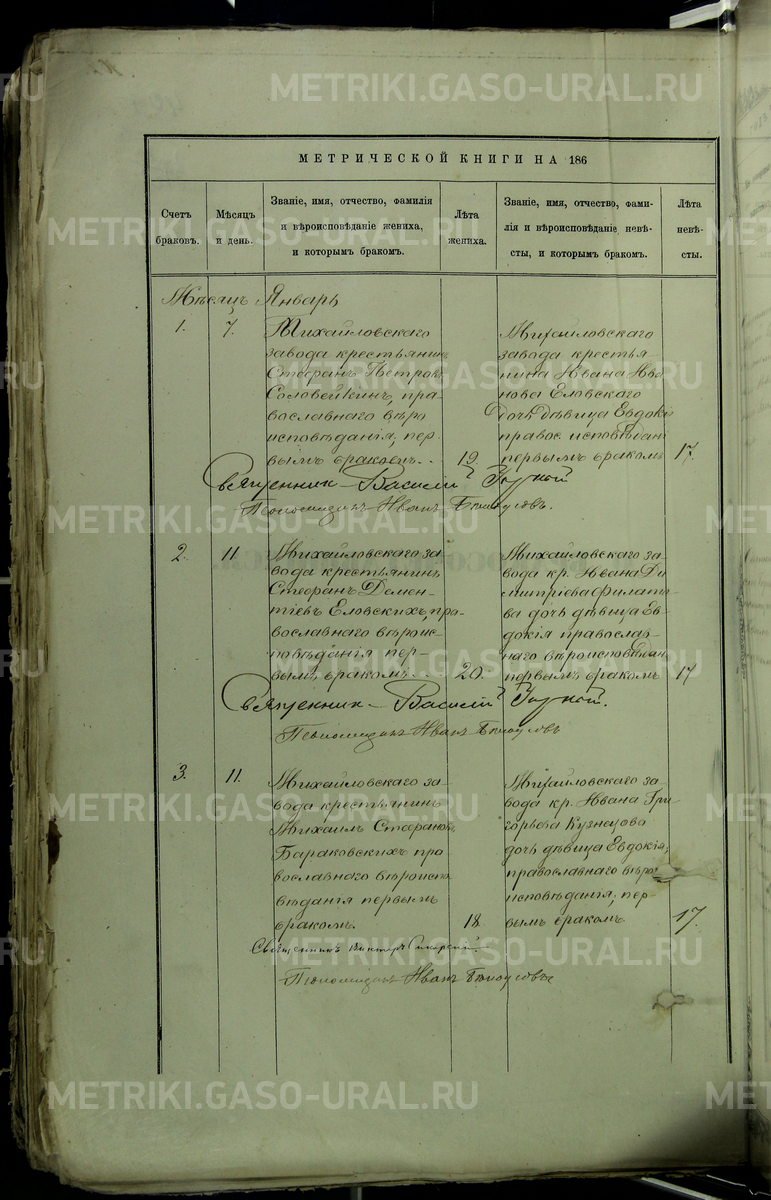 МЕТРИЧЕСКОЙ КНИГИ НА 186
Счетъ
браковъ.
Мѣсяцъ
и день.
Званіе, имя, отчество, фамилія
и вѣроисповѣданіе жениха,
и которымъ бракомъ.
Лѣта
жениха.
Званіе, имя, отчество, фами-
лія и вѣроисповѣданіе невѣ-
сты, и которымъ бракомъ.
Лѣта
невѣ-
сты.
Мѣсяцъ Январь
1.
7.
Михайловскаго
завода крестьянинъ
Стефанъ Петровъ
Соловейкинъ, пра-
вославнаго вѣро
исповѣданія, пер-
вымъ бракомъ.
19
Михайловскаго
завода крестья
нина Ивана Ива
нова Еловскаго
дочь дѣвица Евдокі
правос. исповѣдан
первымъ бракомъ
17.
Священник Василій
Пономарь Иванъ
2.
11
Михайловскаго за-
вода крестьянинъ
Стефанъ Демен-
тіевъ Еловскихъ, пра-
вославнаго вѣроис-
повѣданія пер-
вымъ бракомъ.
20.
Михайловскаго за-
вода кр. Ивана Ди
митріева Филато
ва дочь дѣвица Ев-
докія православ-
наго вѣроисповѣдан
первымъ бракомъ
17
Священник Василій
Пономарь Иванъ
3.
11.
Михайловскаго за-
вода крестьянинъ
Михаилъ Стефановъ
Бараковскихъ пра
вославнаго вѣроиспо
вѣданія первымъ
бракомъ.
18
Михайловскаго за-
вода кр. Ивана Гри-
горьева Кузнецова
дочь дѣвица Евдокія,
православнаго вѣро
исповѣданія, пер-
вымъ бракомъ
17.
Священникъ Викторъ
Пономарь Иванъ
METRIKI.GASO-URAL.RU